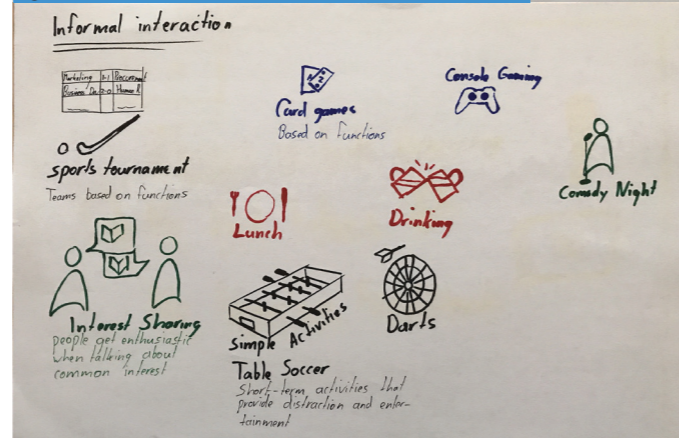 Informal interaction
Marketing 1-1 Procurement
Business De 2-0 Human R
sports tournament
Teams based on functions
Card games
Based on functions
Console Gaming
Comedy Night
Lunch
Drinking
Interest Sharing
people get enthusiastic
when talking about
common interest
Simple Activities
Table Soccer
Short-term activities that
provide distraction and enter-
tainment
Darts